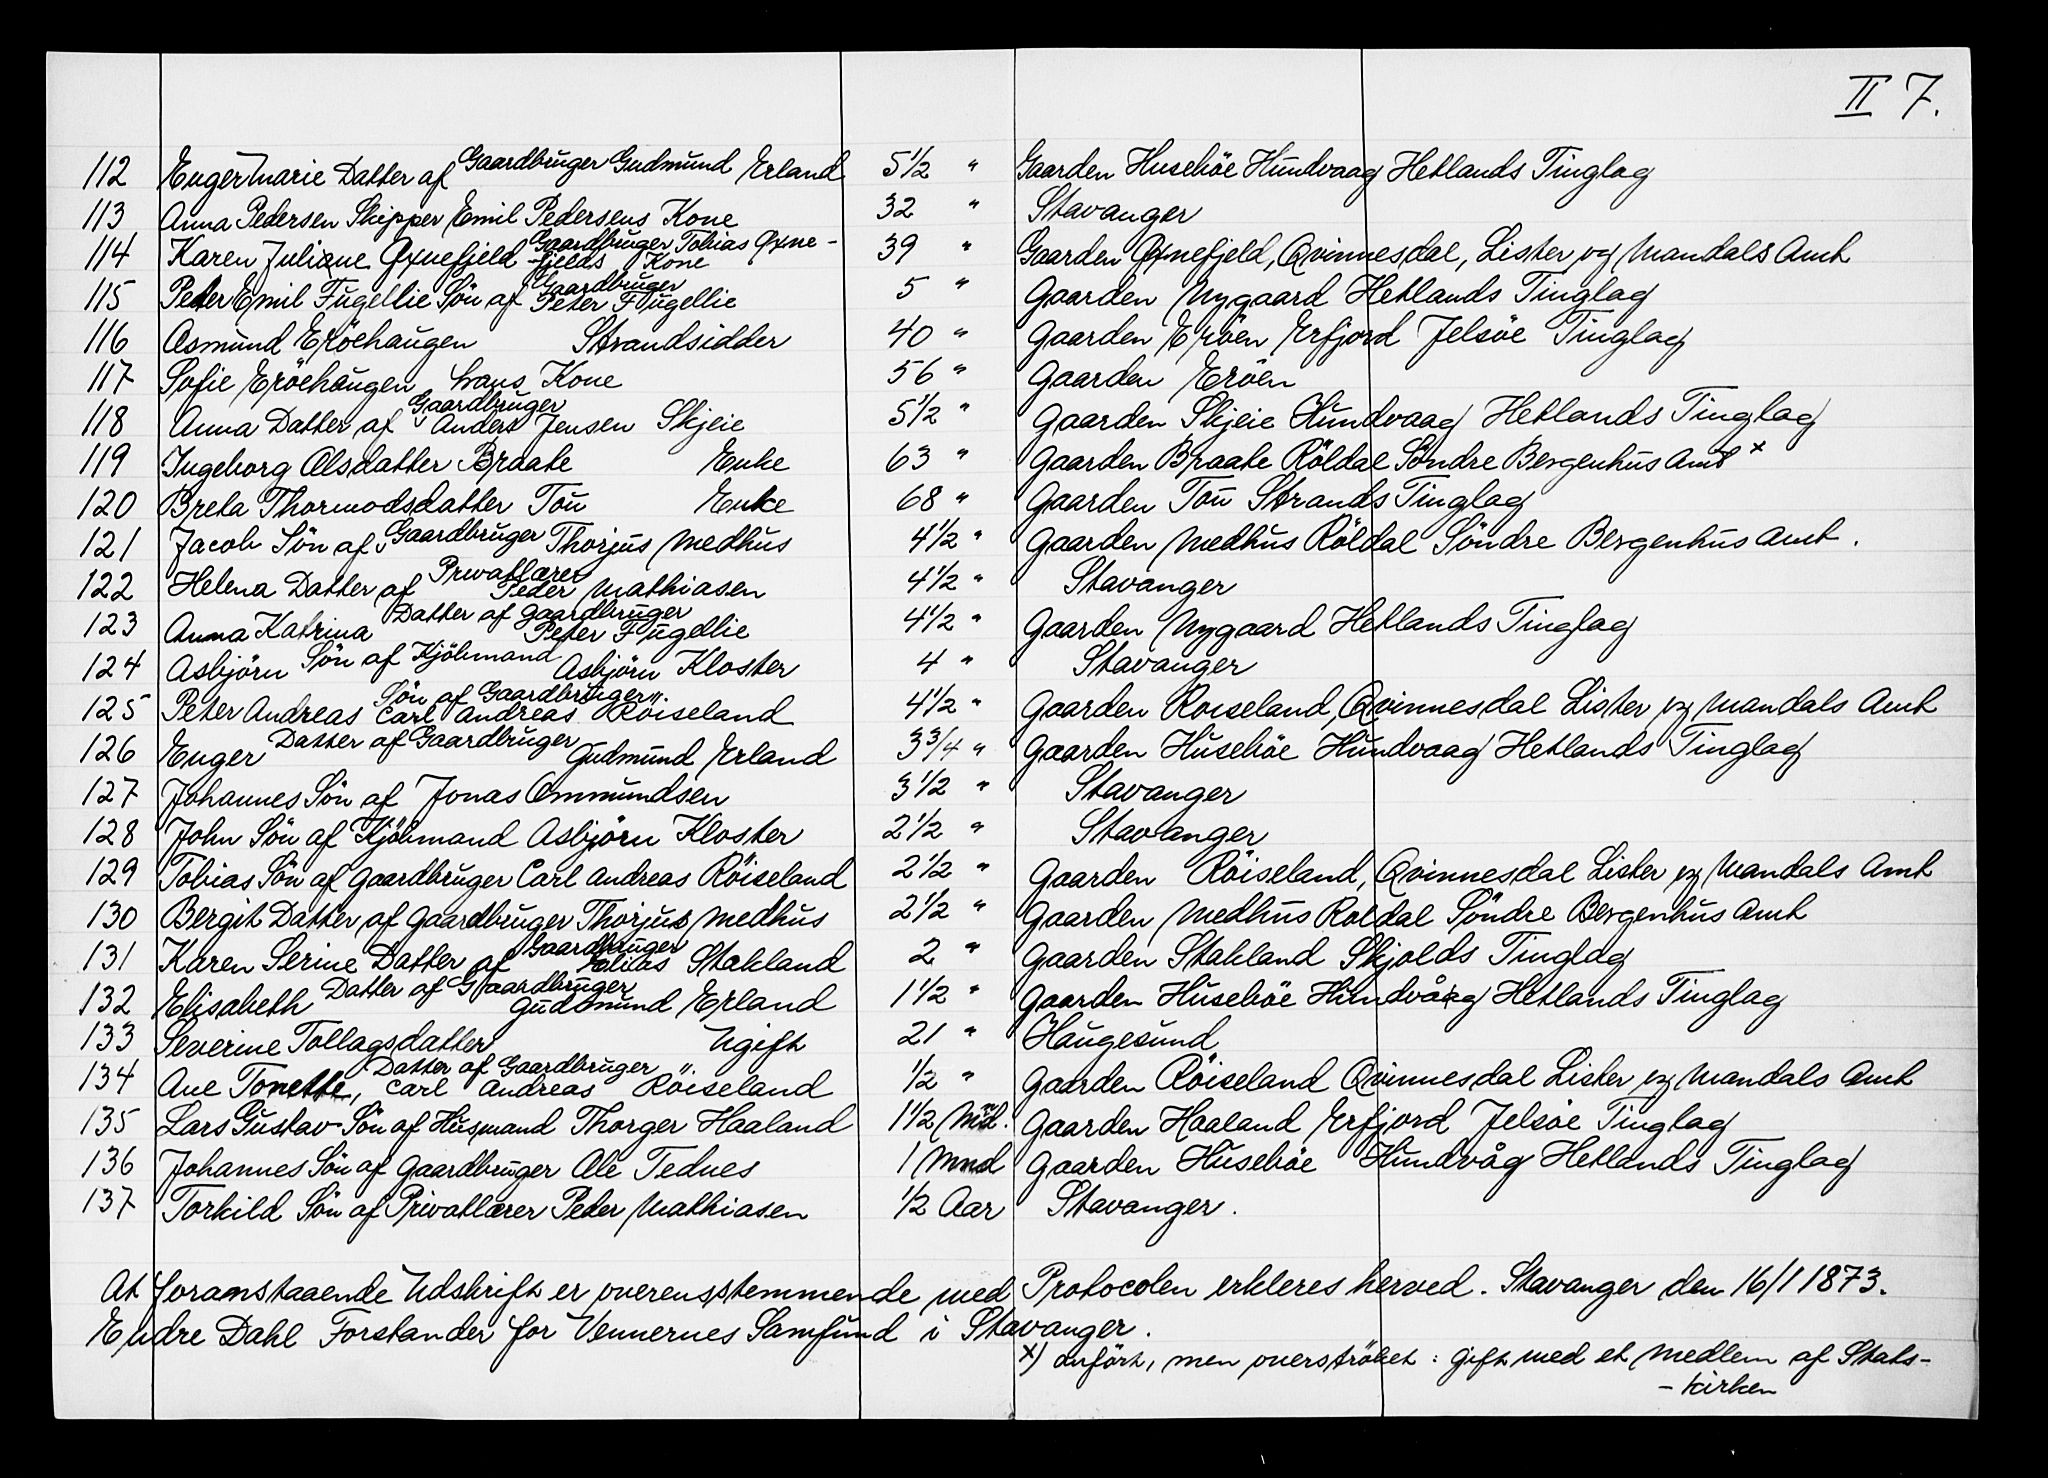 II 7.
112 Enger Marie Datter af Gaardbruger Gudmund Erland 5 1/2 " Gaarden Huseböe Hundvaag Hetlands Tinglag
113 Anna Pedersen Skipper Emil Pedersens Kone 32 " Stavanger
114 Karen Juliane Qxnefjeld Gaardbruger Tobias Qxne-fjelds Kone 39 " Gaarden Qxnefjeld, Qvinnesdal, Lister og Mandals Amt
115 Peter Emil Fugellie Sön af Gaardbruger Peter Fugellie 5 " Gaarden Nygaard Hetlands Tinglag
116 Asmund Eröehaugen Strandsidder 40 " Gaarden Eröen Erfjord Jelsöe Tinglag
117 Sofie Eröehaugen hans Kone 56 " Gaarden Eröen
118 Anna Datter af Gaardbruger Anders Jensen Skjeie 5 1/2 " Gaarden Skjeie Hundvaag Hetlands Tinglag
119 Ingeborg Olsdatter Braate Enke 63 " Gaarden Braate Röldal Söndre Bergenhus Amt x
120 Breta Thormodsdatter Tou Enke 68 " Gaarden Tou Strands Tinglag
121 Jacob Sön af Gaardbruger Thorjus Medhus 4 1/2 " Gaarden Medhus Röldal Söndre Bergenhus Amt.
122 Helena Datter af Privatlærer Peder Mathiasen 4 1/2 " Stavanger
123 Anna Katrina Datter af Gaardbruger Peter Fugellie 4 1/2 " Gaarden Nygaard Hetlands Tinglag
124 Asbjörn Sön af Kjöbmand Asbjörn Kloster 4 " Stavanger
125 Peter Andreas Sön af Gaardbruger Carl Andreas Röiseland 4 1/2 " Gaarden Roiseland, Qvinnesdal Lister og Mandals Amt
126 Enger Datter af Gaardbruger Gudmund Erland 3 3/4 " Gaarden Huseböe Hundvaag Hetlands Tinglag
127 Johannes Sön af Jonas Ommundsen 3 1/2 " Stavanger
128 John Sön af Kjöbmand Asbjörn Kloster 2 1/2 " Stavanger
129 Tobias Sön af Gaardbruger Carl Andreas Röiseland 2 1/2 " Gaarden Röiseland, Qvinnesdal Lister og Mandals Amt
130 Bergit Datter af Gaardbruger Thorjus Medhus 2 1/2 " Gaarden Medhus Roldal Söndre Bergenhus Amt
131 Karen Serine Datter af Gaardbruger Stakland 2 " Gaarden Stakland Skjolds Tinglag
132 Elisabeth Datter af Gaardbruger Gudmund Erland 1 1/2 " Gaarden Huseböe Hundvåag Hetlands Tinglag
133 Severine Tollagsdatter Ugift 21 " Haugesund
134 Ane Tonette, Datter af Gaardbruger Carl Andreas Röiseland 1/2 " Gaarden Röiseland Qvinnesdal Lister og Mandals Amt
135 Lars Gustav Sön af Husmand Thorger Haaland 1 1/2 Mnd. Gaarden Haaland Erfjord Jelsöe Tinglag
136 Johannes Sön af Gaardbruger Ole Tednes 1 Mnd Gaarden Huseböe Hundvåg Hetlands Tinglag
137 Torkild Sön af Privatlærer Peder Mathiasen 1/2 Aar Stavanger.
At foranstaaende Udskrift er overensstemmende med Protocolen erkleres herved. Stavanger den 16/1 1873.
Endre Dahl Forstander for Vennernes Samfund i Stavanger.
x) anfört, men overströket: gift med et medlem af Stats-
-kirken